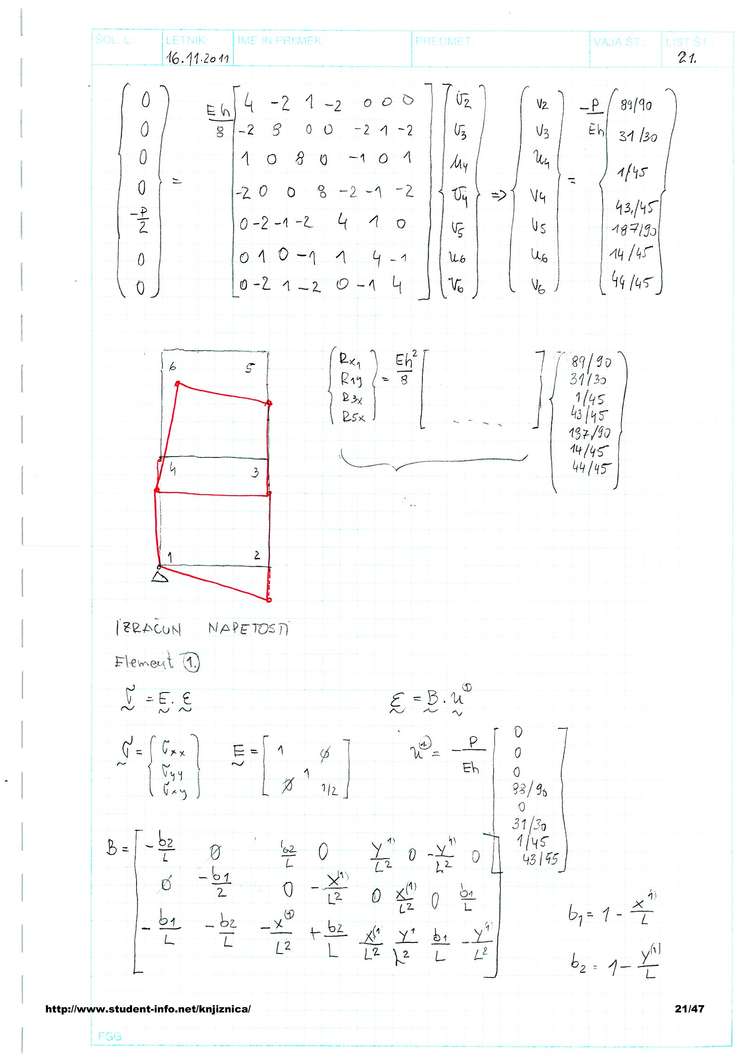 ŠOL. L. LETNIK IME IN PRIIMEK PREDMET VAJA ŠT. LIST ŠT.
16.11.2011 21.
{0 0 0 0 -P/2 0 0} = Eh/8 [
4 -2 1 -2 0 0 0
-2 8 0 0 -2 1 -2
1 0 8 0 -1 0 1
-2 0 0 8 -2 -1 -2
0 -2 -1 -2 4 1 0
0 1 0 -1 1 4 -1
0 -2 1 -2 0 -1 4
] {v2 v3 u4 v4 v5 u6 v6} => {v2 v3 u4 v4 v5 u6 v6} = -P/Eh {89/90 31/30 1/45 43/45 187/90 14/45 44/45}
6 5
4 3
1 2
{Rx1 R1y R3x R5x} = Eh²/8 [ - - - - ] {89/90 31/30 1/45 43/45 187/90 14/45 44/45}
IZRAČUN NAPETOSTI
Element 1.
σ = E . ε ε = B . u⁽¹⁾
σ = {σxx σyy σxy} E = [1 ∅ ∅ 1 1/2] u⁽¹⁾ = -P/Eh [0 0 0 83/90 0 31/30 1/45 43/55]
B = [
-b2/L 0 b2/L 0 y⁽¹⁾/L² 0 -y⁽¹⁾/L² 0
0 -b1/2 0 -x⁽¹⁾/L² 0 x⁽¹⁾/L² 0 b1/L
-b1/L -b2/L -x⁽¹⁾/L² +b2/L x⁽¹/L² y¹/L² b1/L -y⁽¹/L²
]
b1 = 1 - x⁽¹⁾/L
b2 = 1 - y⁽¹⁾/L
http://www.student-info.net/knjiznica/ 21/47
FGG